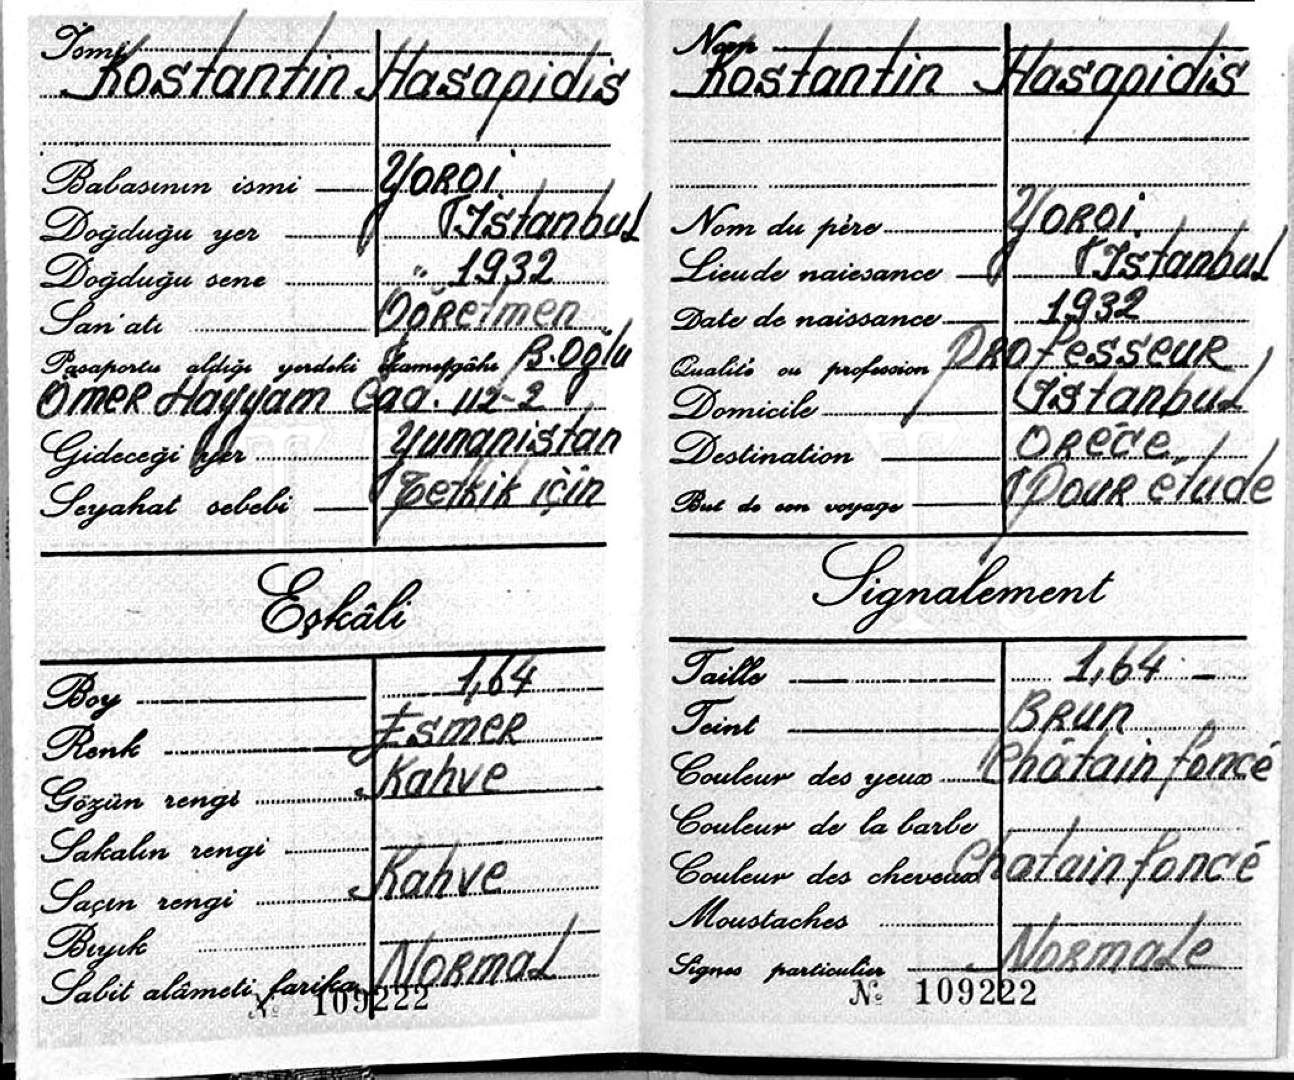 İsmi
Kostantin Hasapidis
Babasının ismi Yorgi
Doğduğu yer İstanbul
Doğduğu sene " 1932
San'atı Öğretmen
Pasaportu aldığı yerdeki ikametgâhı B.Oğlu
Ömer Hayyam Cad. 112-2
Gideceği yer Yunanistan
Seyahat sebebi Tetkik için
Eşkâli
Boy 1,64
Renk Esmer
Gözün rengi Kahve
Sakalın rengi
Saçın rengi Kahve
Bıyık
Sabit alâmeti farika Normal
№ 109222
Nom
Kostantin Hasapidis
Nom du père Yorgi
Lieude naiesance İstanbul
Date de naissance 1932
Qualité ou profession Professeur
Domicile İstanbul
Destination Grèce
But de son voyage Pour étude
Signalement
Taille 1,64 -
Teint Brun
Couleur des yeux Châtain foncé
Couleur de la barbe
Couleur des cheveux Chatain foncé
Moustaches
Signes particulier Normale
№ 109222